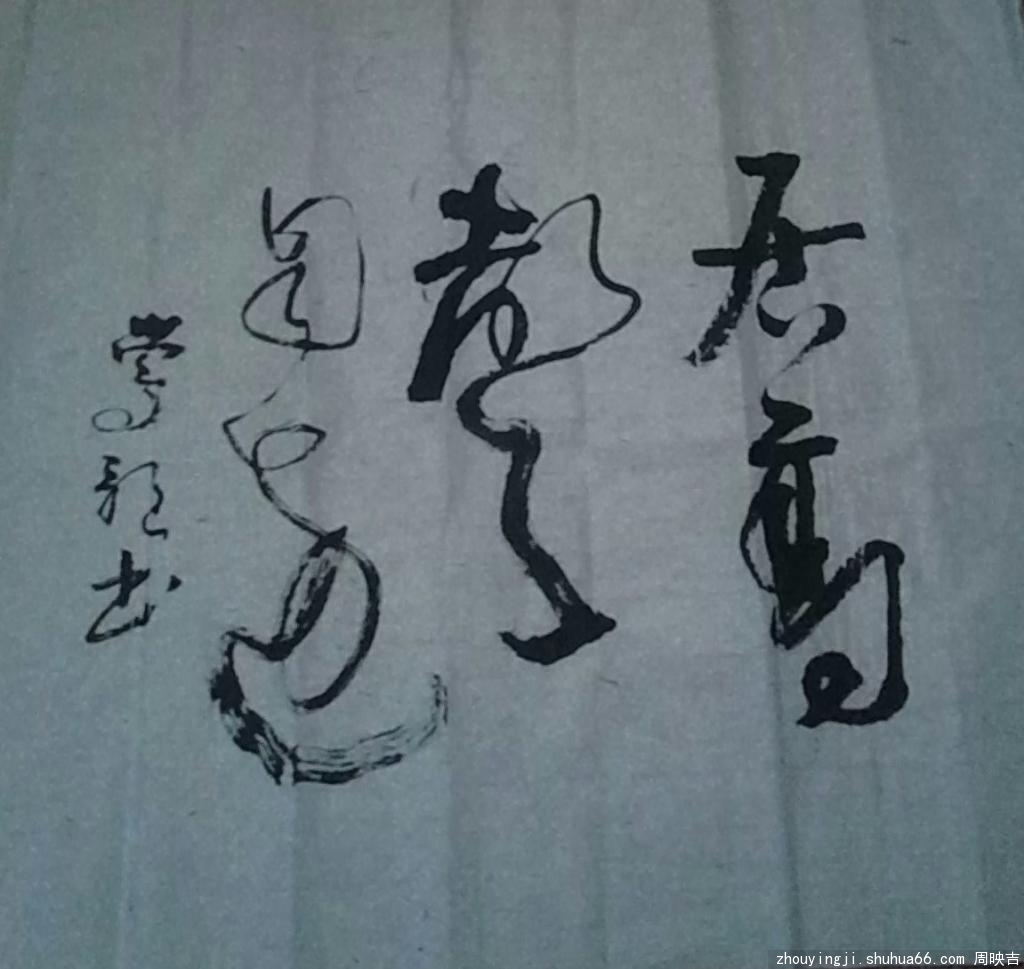 居高
聲自遠
书
zhouyingji.shuhua66.com 周映吉